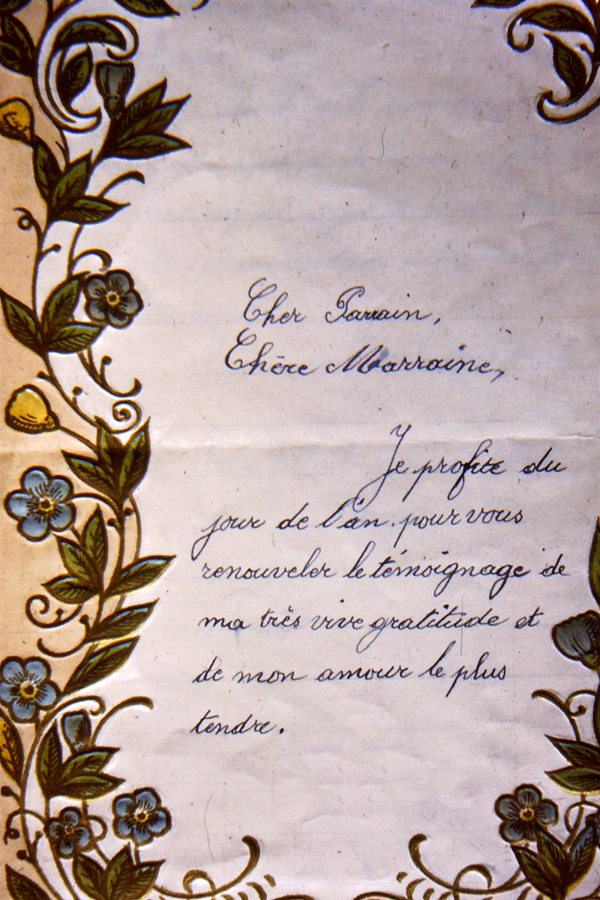 Cher Parrain,
Chère Marraine,
Je profite du
jour de l'an pour vous
renouveler le témoignage de
ma très vive gratitude et
de mon amour le plus
tendre.